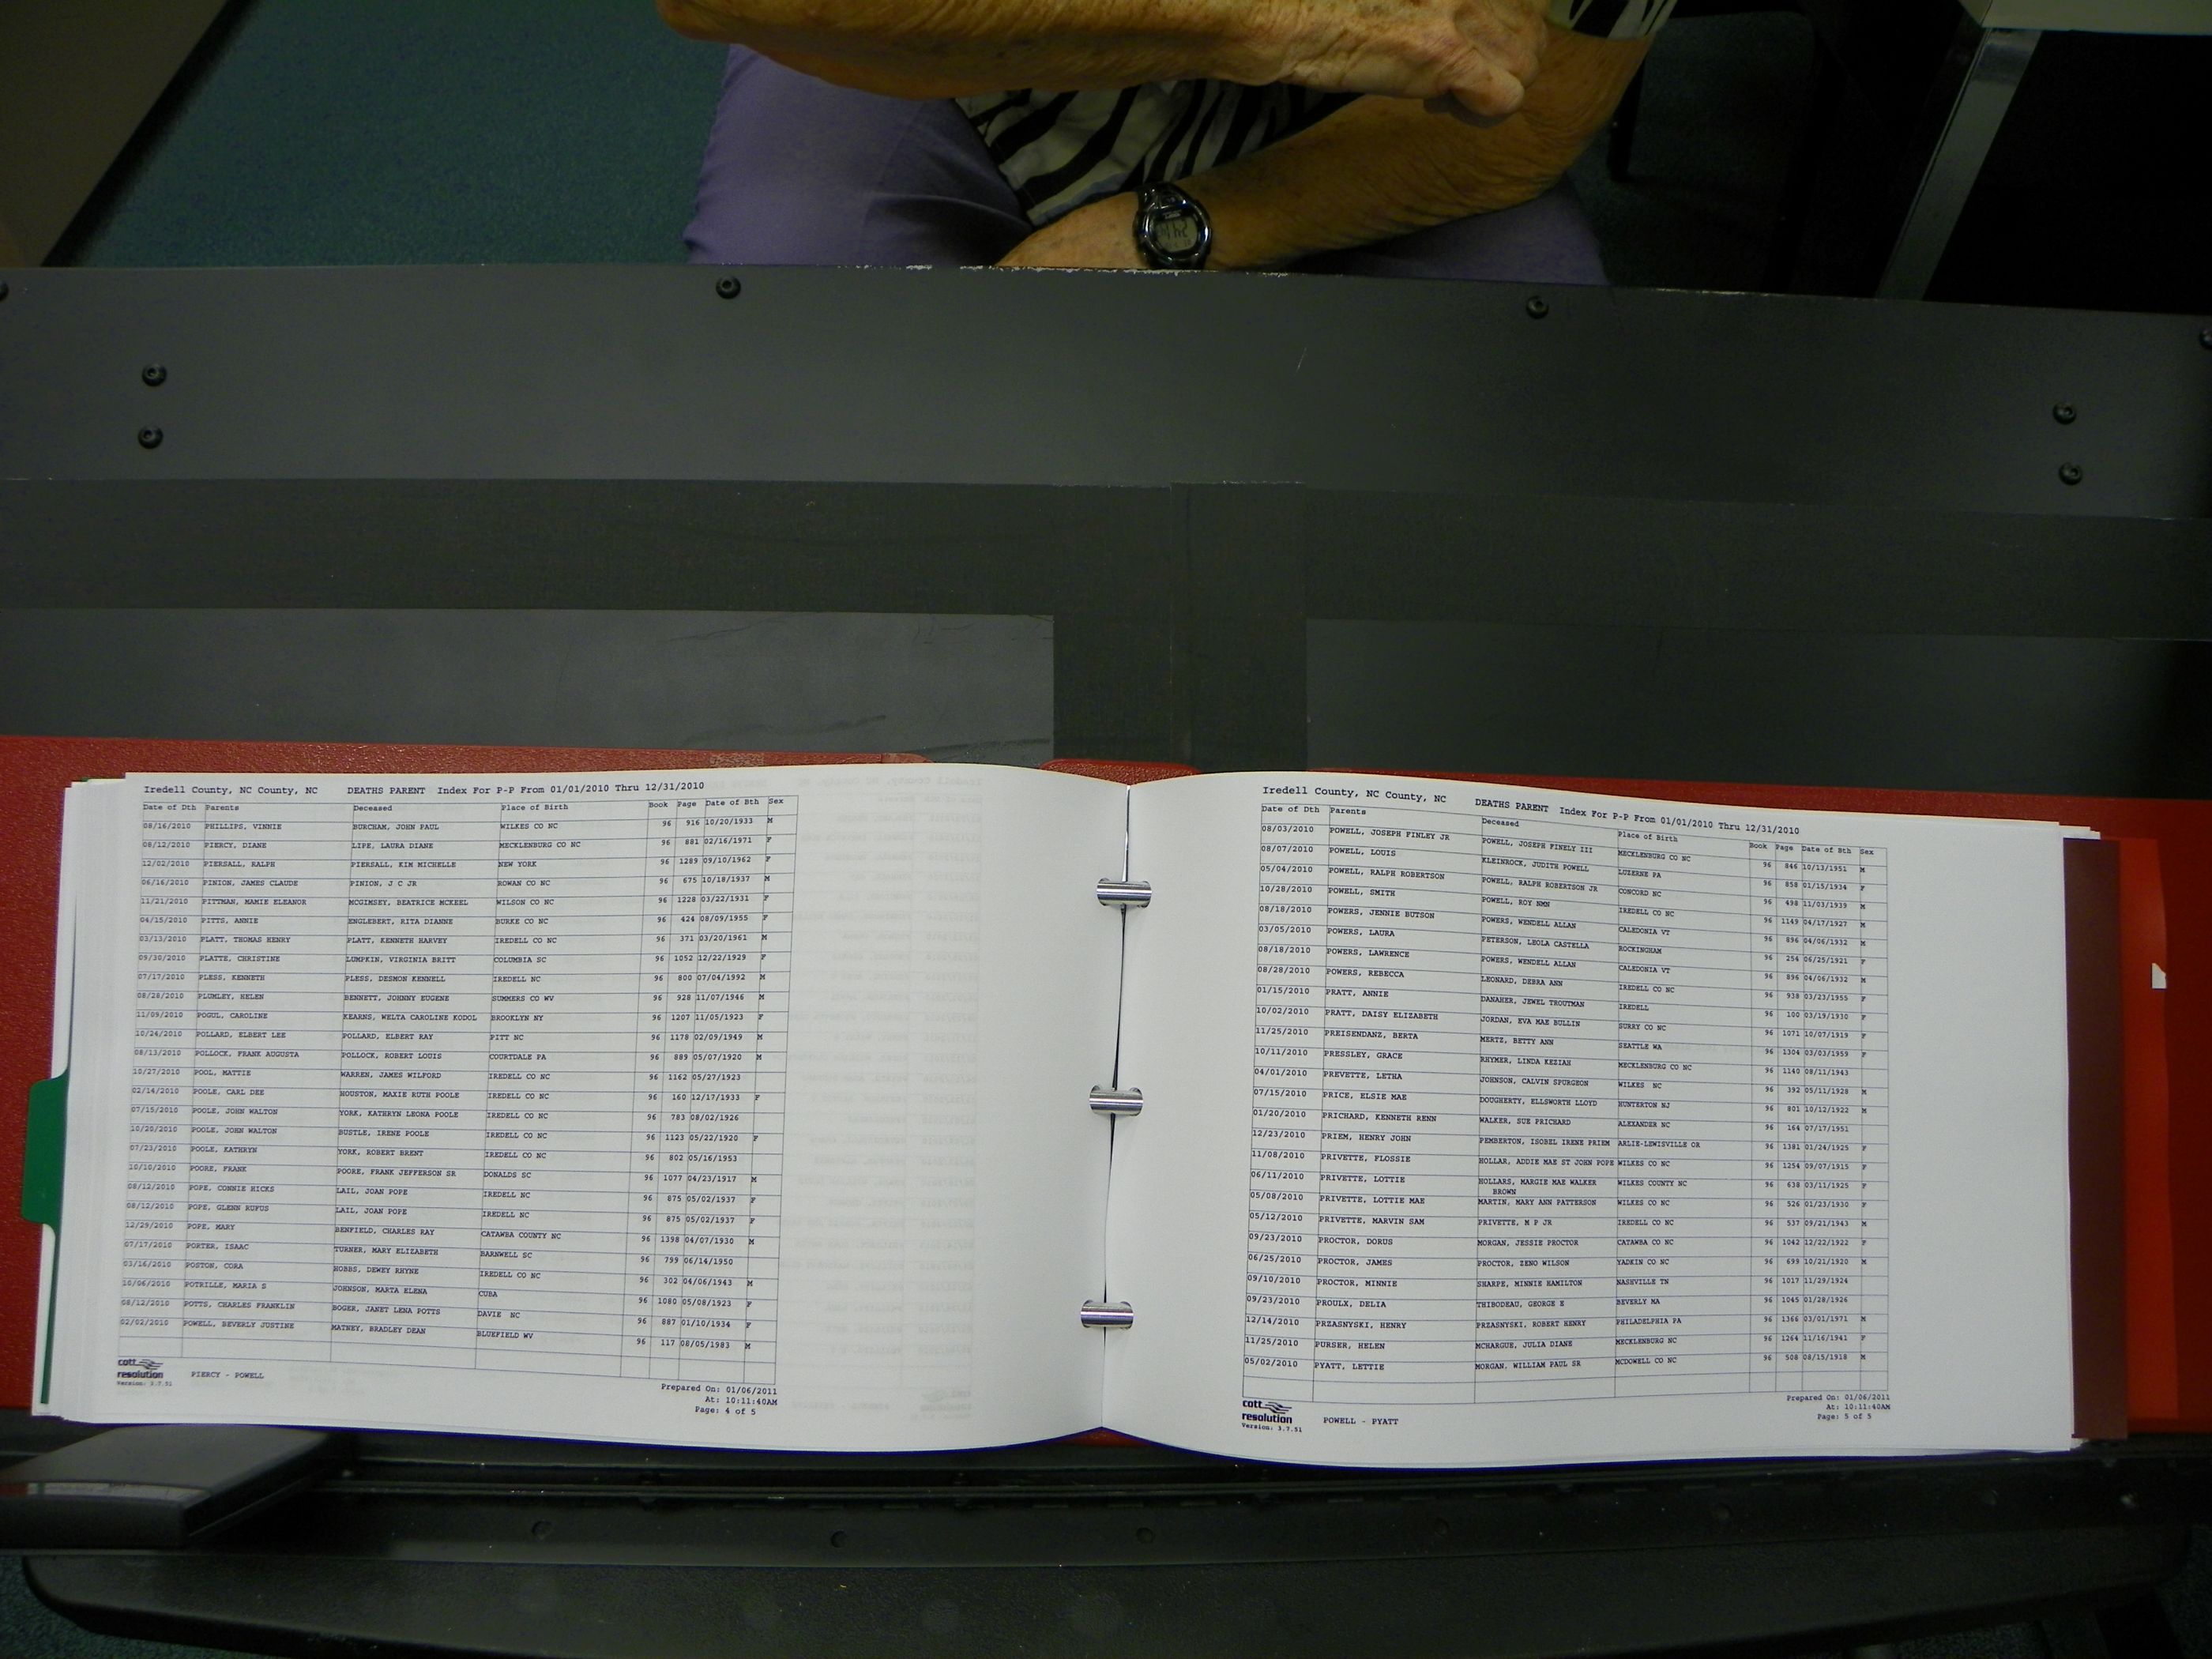 Iredell County, NC County, NC DEATHS PARENT Index For P-P From 01/01/2010 Thru 12/31/2010
Date of Dth Parents Deceased Place of Birth Book Page Date of Bth Sex
08/16/2010 PHILLIPS, VINNIE BURCHAM, JOHN PAUL WILKES CO NC 96 916 10/20/1933 M
08/12/2010 PIERCY, DIANE LIPE, LAURA DIANE MECKLENBURG CO NC 96 881 02/16/1971 F
12/02/2010 PIERSALL, RALPH PIERSALL, KIM MICHELLE NEW YORK 96 1289 09/10/1962 F
06/16/2010 PINION, JAMES CLAUDE PINION, J C JR ROWAN CO NC 96 675 10/18/1937 M
11/21/2010 PITTMAN, MAMIE ELEANOR MCGIMSEY, BEATRICE MCKEEL WILSON CO NC 96 1228 03/22/1931 F
04/15/2010 PITTS, ANNIE ENGLEBERT, RITA DIANNE BURKE CO NC 96 424 08/09/1955 F
03/13/2010 PLATT, THOMAS HENRY PLATT, KENNETH HARVEY IREDELL CO NC 96 371 03/20/1961 M
09/30/2010 PLATTE, CHRISTINE LUMPKIN, VIRGINIA BRITT COLUMBIA SC 96 1052 12/22/1929 F
07/17/2010 PLESS, KENNETH PLESS, DESMON KENNELL IREDELL NC 96 800 07/04/1992 M
08/28/2010 PLUMLEY, HELEN BENNETT, JOHNNY EUGENE SUMMERS CO WV 96 928 11/07/1946 M
11/09/2010 POGUL, CAROLINE KEARNS, WELTA CAROLINE KODOL BROOKLYN NY 96 1207 11/05/1923 F
10/24/2010 POLLARD, ELBERT LEE POLLARD, ELBERT RAY PITT NC 96 1178 02/09/1949 M
08/13/2010 POLLOCK, FRANK AUGUSTA POLLOCK, ROBERT LOUIS COURTDALE PA 96 889 05/07/1920 M
10/27/2010 POOL, MATTIE WARREN, JAMES WILFORD IREDELL CO NC 96 1162 05/27/1923
02/14/2010 POOLE, CARL DEE HOUSTON, MAXIE RUTH POOLE IREDELL CO NC 96 160 12/17/1933 F
07/15/2010 POOLE, JOHN WALTON YORK, KATHRYN LEONA POOLE IREDELL CO NC 96 783 08/02/1926
10/20/2010 POOLE, JOHN WALTON BUSTLE, IRENE POOLE IREDELL CO NC 96 1123 05/22/1920 F
07/23/2010 POOLE, KATHRYN YORK, ROBERT BRENT IREDELL CO NC 96 802 05/16/1953
10/10/2010 POORE, FRANK POORE, FRANK JEFFERSON SR DONALDS SC 96 1077 04/23/1917 M
08/12/2010 POPE, CONNIE HICKS LAIL, JOAN POPE IREDELL NC 96 875 05/02/1937 F
08/12/2010 POPE, GLENN RUFUS LAIL, JOAN POPE IREDELL NC 96 875 05/02/1937 F
12/29/2010 POPE, MARY BENFIELD, CHARLES RAY CATAWBA COUNTY NC 96 1398 04/07/1930 M
07/17/2010 PORTER, ISAAC TURNER, MARY ELIZABETH BARNWELL SC 96 799 06/14/1950
03/16/2010 POSTON, CORA HOBBS, DEWEY RHYNE IREDELL CO NC 96 302 04/06/1943 M
10/06/2010 POTRILLE, MARIA S JOHNSON, MARTA ELENA CUBA 96 1080 05/08/1923 F
08/12/2010 POTTS, CHARLES FRANKLIN BOGER, JANET LENA POTTS DAVIE NC 96 887 01/10/1934 F
02/02/2010 POWELL, BEVERLY JUSTINE MATNEY, BRADLEY DEAN BLUEFIELD WV 96 117 08/05/1983 M
cott
resolution
Version: 3.7.51
PIERCY - POWELL
Prepared On: 01/06/2011
At: 10:11:40AM
Page: 4 of 5
Iredell County, NC County, NC DEATHS PARENT Index For P-P From 01/01/2010 Thru 12/31/2010
Date of Dth Parents Deceased Place of Birth Book Page Date of Bth Sex
08/03/2010 POWELL, JOSEPH FINLEY JR POWELL, JOSEPH FINELY III MECKLENBURG CO NC 96 846 10/13/1951 M
08/07/2010 POWELL, LOUIS KLEINROCK, JUDITH POWELL LUZERNE PA 96 858 01/15/1934 F
05/04/2010 POWELL, RALPH ROBERTSON POWELL, RALPH ROBERTSON JR CONCORD NC 96 498 11/03/1939 M
10/28/2010 POWELL, SMITH POWELL, ROY NMN IREDELL CO NC 96 1149 04/17/1927 M
08/18/2010 POWERS, JENNIE BUTSON POWERS, WENDELL ALLAN CALEDONIA VT 96 896 04/06/1932 M
03/05/2010 POWERS, LAURA PETERSON, LEOLA CASTELLA ROCKINGHAM 96 254 06/25/1921 F
08/18/2010 POWERS, LAWRENCE POWERS, WENDELL ALLAN CALEDONIA VT 96 896 04/06/1932 M
08/28/2010 POWERS, REBECCA LEONARD, DEBRA ANN IREDELL CO NC 96 938 03/23/1955 F
01/15/2010 PRATT, ANNIE DANAHER, JEWEL TROUTMAN IREDELL 96 100 03/19/1930 F
10/02/2010 PRATT, DAISY ELIZABETH JORDAN, EVA MAE BULLIN SURRY CO NC 96 1071 10/07/1919 F
11/25/2010 PREISENDANZ, BERTA MERTZ, BETTY ANN SEATTLE WA 96 1304 03/03/1959 F
10/11/2010 PRESSLEY, GRACE RHYMER, LINDA KEZIAH MECKLENBURG CO NC 96 1140 08/11/1943
04/01/2010 PREVETTE, LETHA JOHNSON, CALVIN SPURGEON WILKES NC 96 392 05/11/1928 M
07/15/2010 PRICE, ELSIE MAE DOUGHERTY, ELLSWORTH LLOYD HUNTERTON NJ 96 801 10/12/1922 M
01/20/2010 PRICHARD, KENNETH RENN WALKER, SUE PRICHARD ALEXANDER NC 96 164 07/17/1951
12/23/2010 PRIEM, HENRY JOHN PEMBERTON, ISOBEL IRENE PRIEM ARLIE-LEWISVILLE OR 96 1381 01/24/1925 F
11/08/2010 PRIVETTE, FLOSSIE HOLLAR, ADDIE MAE ST JOHN POPE WILKES CO NC 96 1254 09/07/1915 F
06/11/2010 PRIVETTE, LOTTIE HOLLARS, MARGIE MAE WALKER WILKES COUNTY NC 96 638 03/11/1925 F
BROWN
05/08/2010 PRIVETTE, LOTTIE MAE MARTIN, MARY ANN PATTERSON WILKES CO NC 96 526 01/23/1930 F
05/12/2010 PRIVETTE, MARVIN SAM PRIVETTE, M P JR IREDELL CO NC 96 537 09/21/1943 M
09/23/2010 PROCTOR, DORUS MORGAN, JESSIE PROCTOR CATAWBA CO NC 96 1042 12/22/1922 F
06/25/2010 PROCTOR, JAMES PROCTOR, ZENO WILSON YADKIN CO NC 96 699 10/21/1920 M
09/10/2010 PROCTOR, MINNIE SHARPE, MINNIE HAMILTON NASHVILLE TN 96 1017 11/29/1924
09/23/2010 PROULX, DELIA THIBODEAU, GEORGE E BEVERLY MA 96 1045 01/28/1926
12/14/2010 PRZASNYSKI, HENRY PRZASNYSKI, ROBERT HENRY PHILADELPHIA PA 96 1366 03/01/1971 M
11/25/2010 PURSER, HELEN MCHARGUE, JULIA DIANE MECKLENBURG NC 96 1264 11/16/1941 F
05/02/2010 PYATT, LETTIE MORGAN, WILLIAM PAUL SR MCDOWELL CO NC 96 508 08/15/1918 M
cott
resolution
Version: 3.7.51
POWELL - PYATT
Prepared On: 01/06/2011
At: 10:11:40AM
Page: 5 of 5